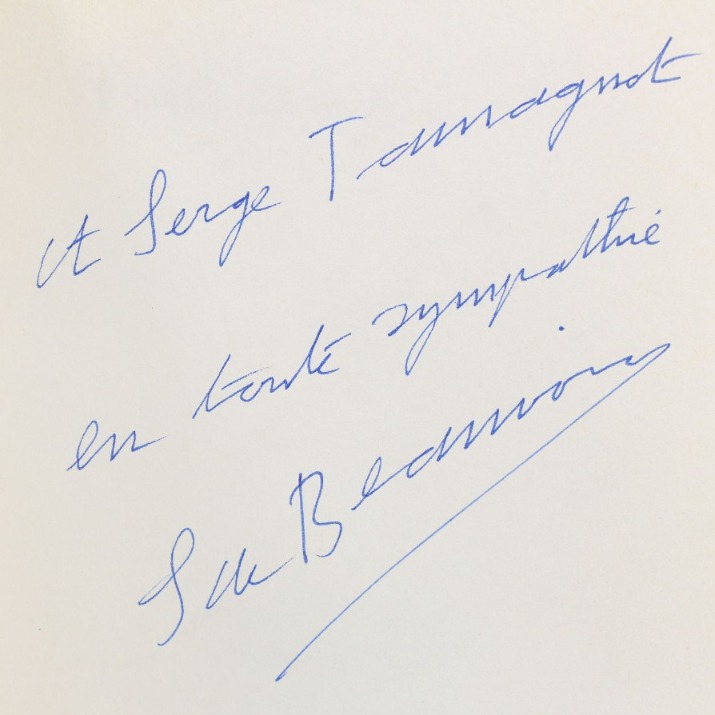 A Serge Tamagnot
en toute sympathie
S de Beauvoir